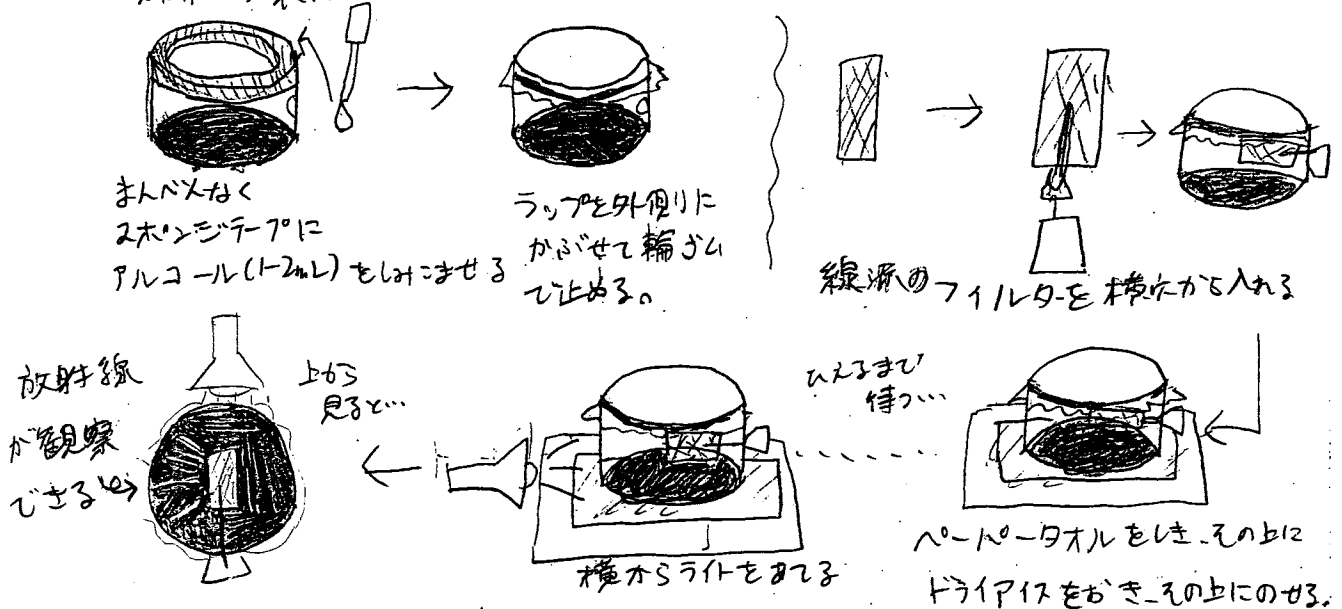 まんべんなく
スポンジテープに
アルコール(1-2mL)をしみこませる
ラップを外側に
かぶせて輪ゴム
で止める。
線源のフィルターを横穴から入れる
ペーパータオルをしき、その上に
ドライアイスをおき、その上にのせる。
ひえるまで
待つ…
横からライトをあてる
上から
見ると…
放射線
が観察
できる